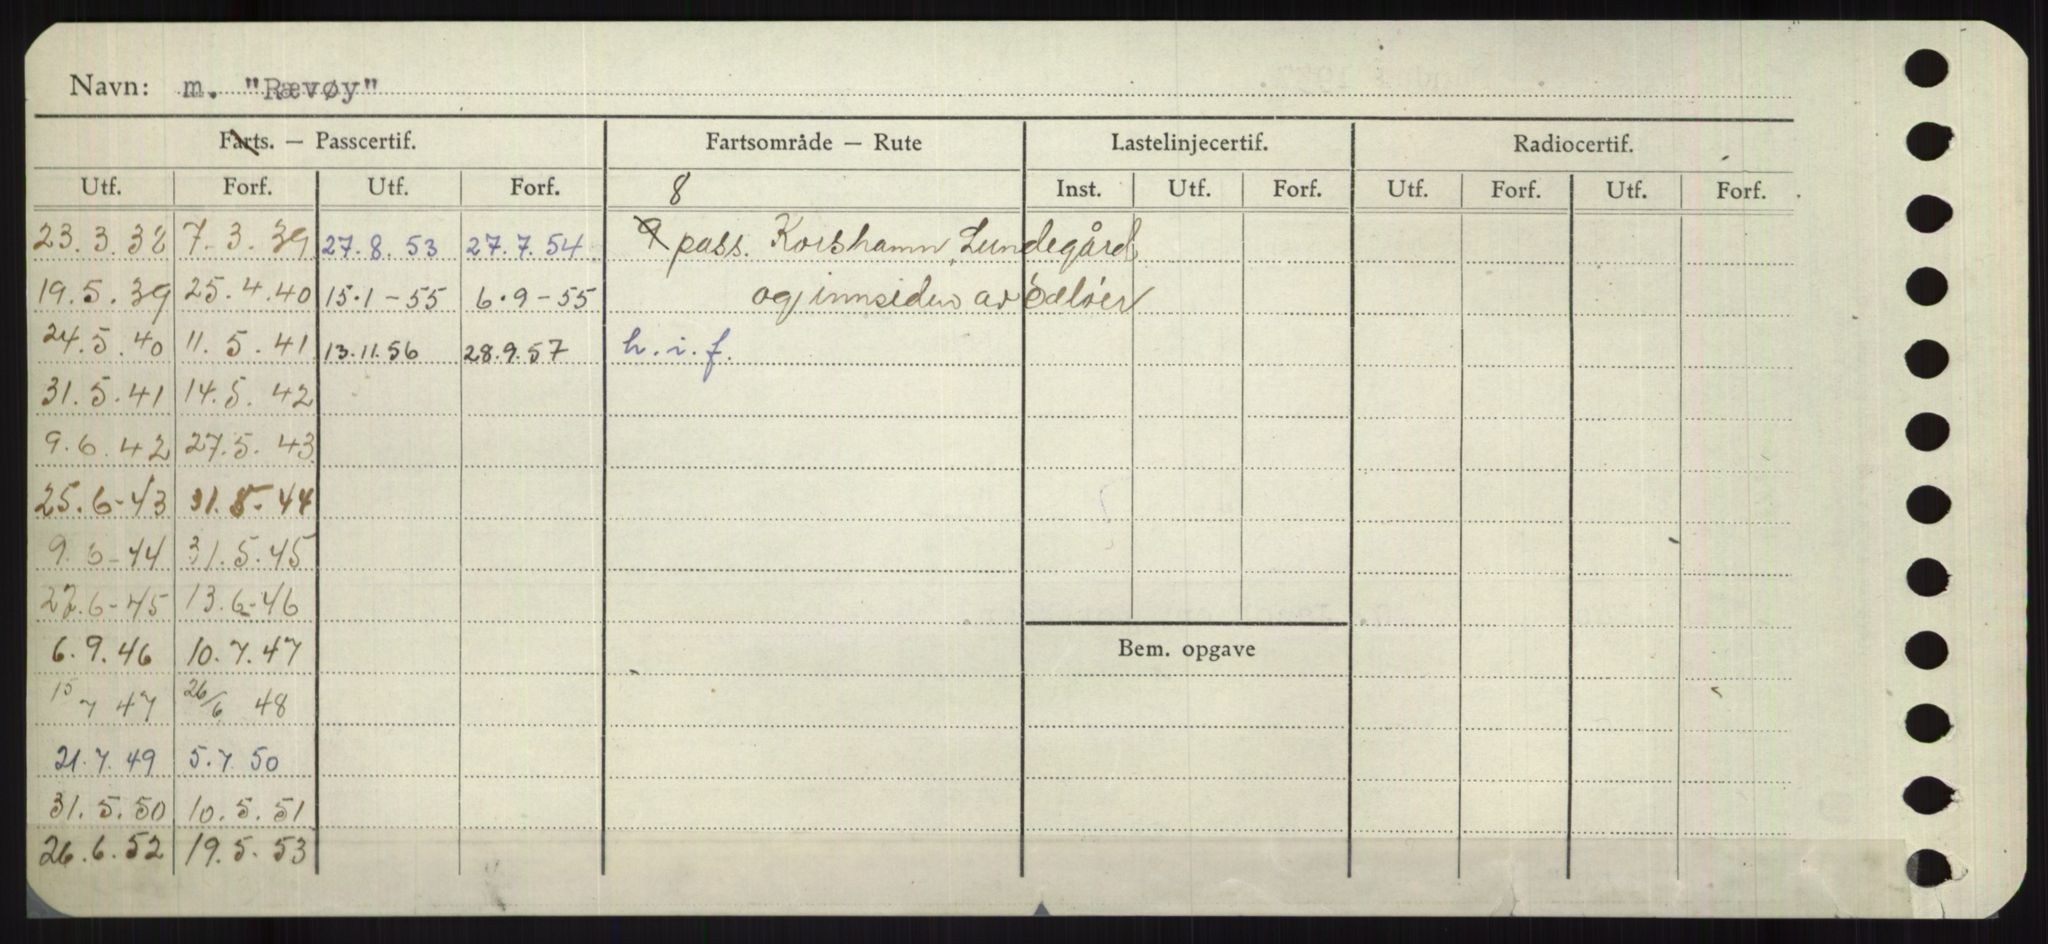 Navn: m. "Rævøy"
Farts. — Passcertif. Fartsområde — Rute Lastelinjecertif. Radiocertif.
Utf. Forf. Utf. Forf. 8 Inst. Utf. Forf. Utf. Forf. Utf. Forf.
23.3.38 7.3.39 27.8.53 27.7.54 9 pass. Korshamn, Lundegård
19.5.39 25.4.40 15.1-55 6.9-55 og innsiden av
24.5.40 11.5.41 13.11.56 28.9.57 h.i.f.
31.5.41 14.5.42
9.6.42 27.5.43
25.6-43 31.5-44
9.6-44 31.5.45
22.6-45 13.6-46
6.9.46 10.7.47
15/7 47 26/6 48
Bem. opgave
21.7.49 5.7.50
31.5.50 10.5.51
26.6.52 19.5.53